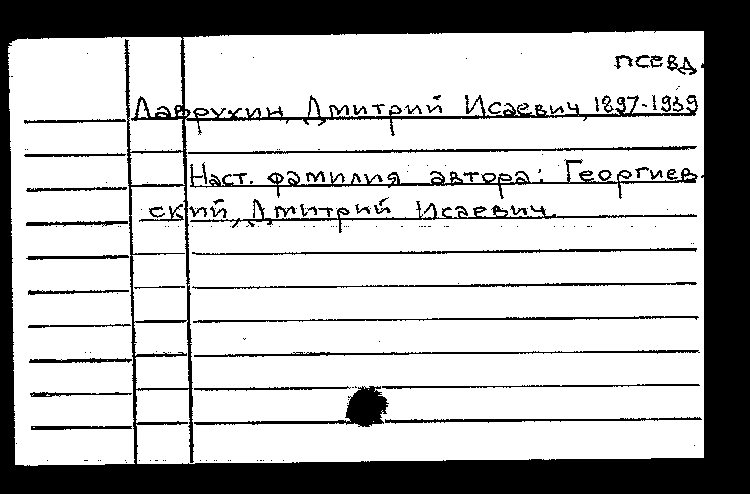 псевд.
Лаврухин, Дмитрий Исаевич, 1897-1939
Наст. фамилия автора: Георгиев-
ский, Дмитрий Исаевич.